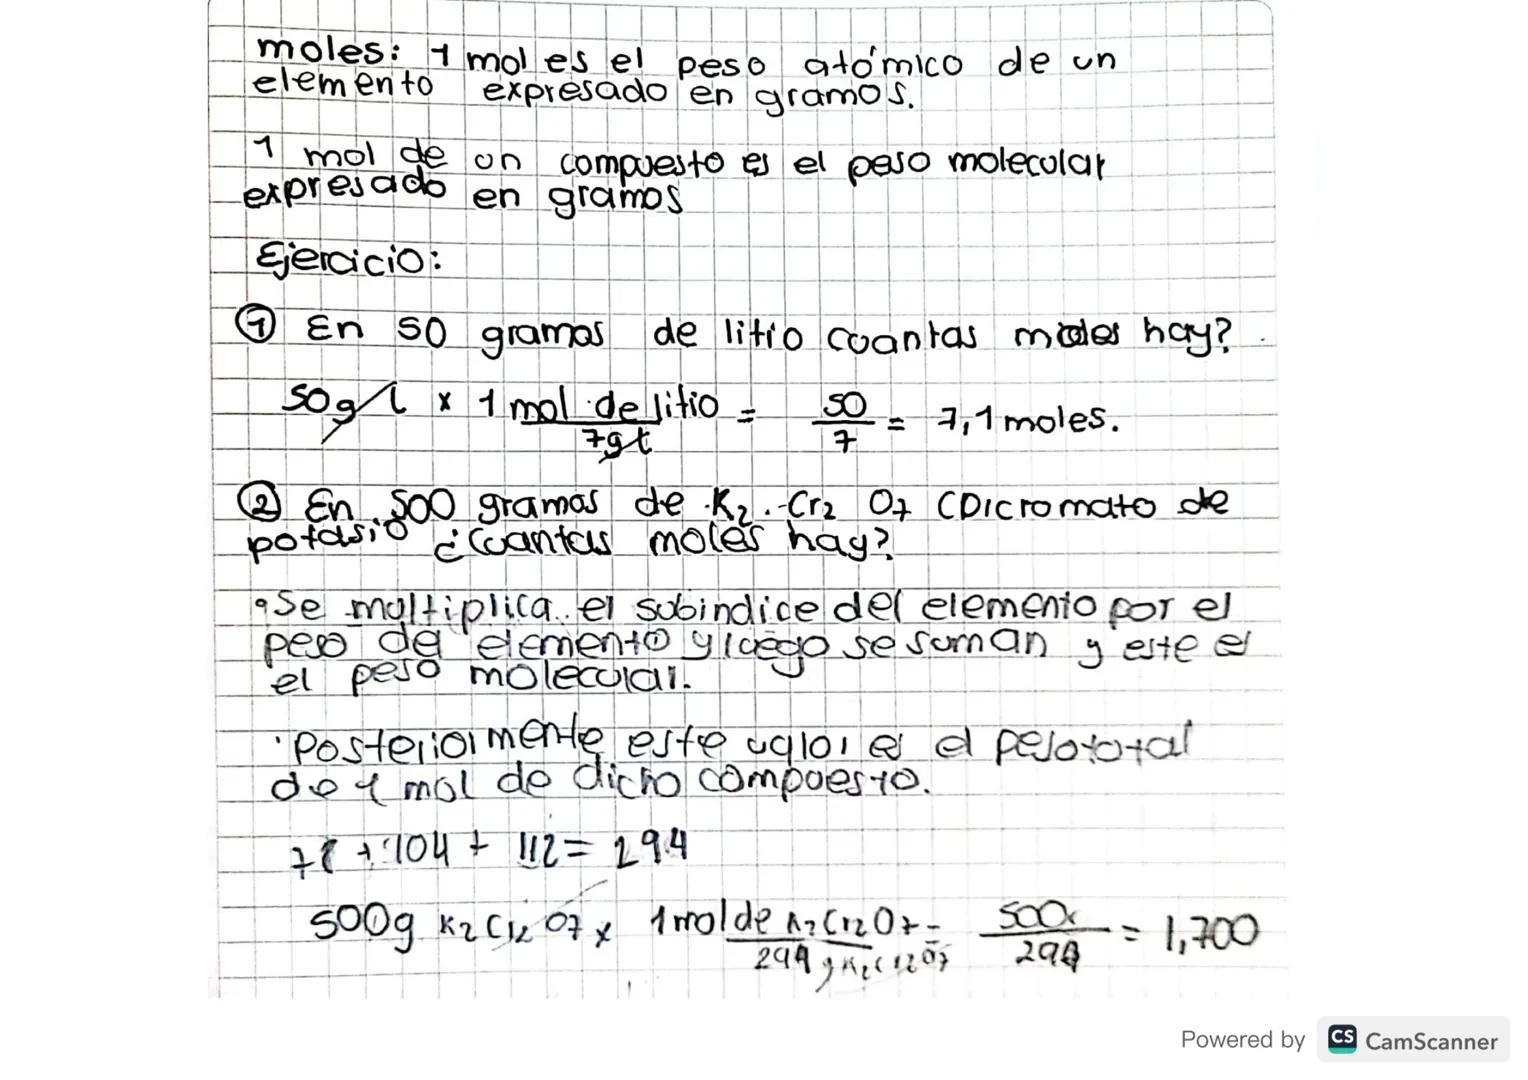 moles: 1 mol es el peso atómico de un
elemento expresado en gramos.
1 mol de un compuesto es el peso molecular
expresado en gramos
Ejercicio:
① En 50 gramos de litio cuantas moles hay?
50g/l x 1 mol de litio = 50 = 7,1 moles.
7gt 7
② En 500 gramos de K2 Cr2 O7 (Dicromato de
potasio ¿cuantas moles hay?
Se multiplica el subindice del elemento por el
peso del elemento y luego se suman y este es
el peso molecular.
Posteriormente este valor es el peso total
de 1 mol de dicho compuesto.
78 + 104 + 112 = 294
500g K2Cr2O7 x 1 mol de K2Cr2O7 = 500 = 1,700
294 g K2Cr2O7 294
Powered by CS CamScanner